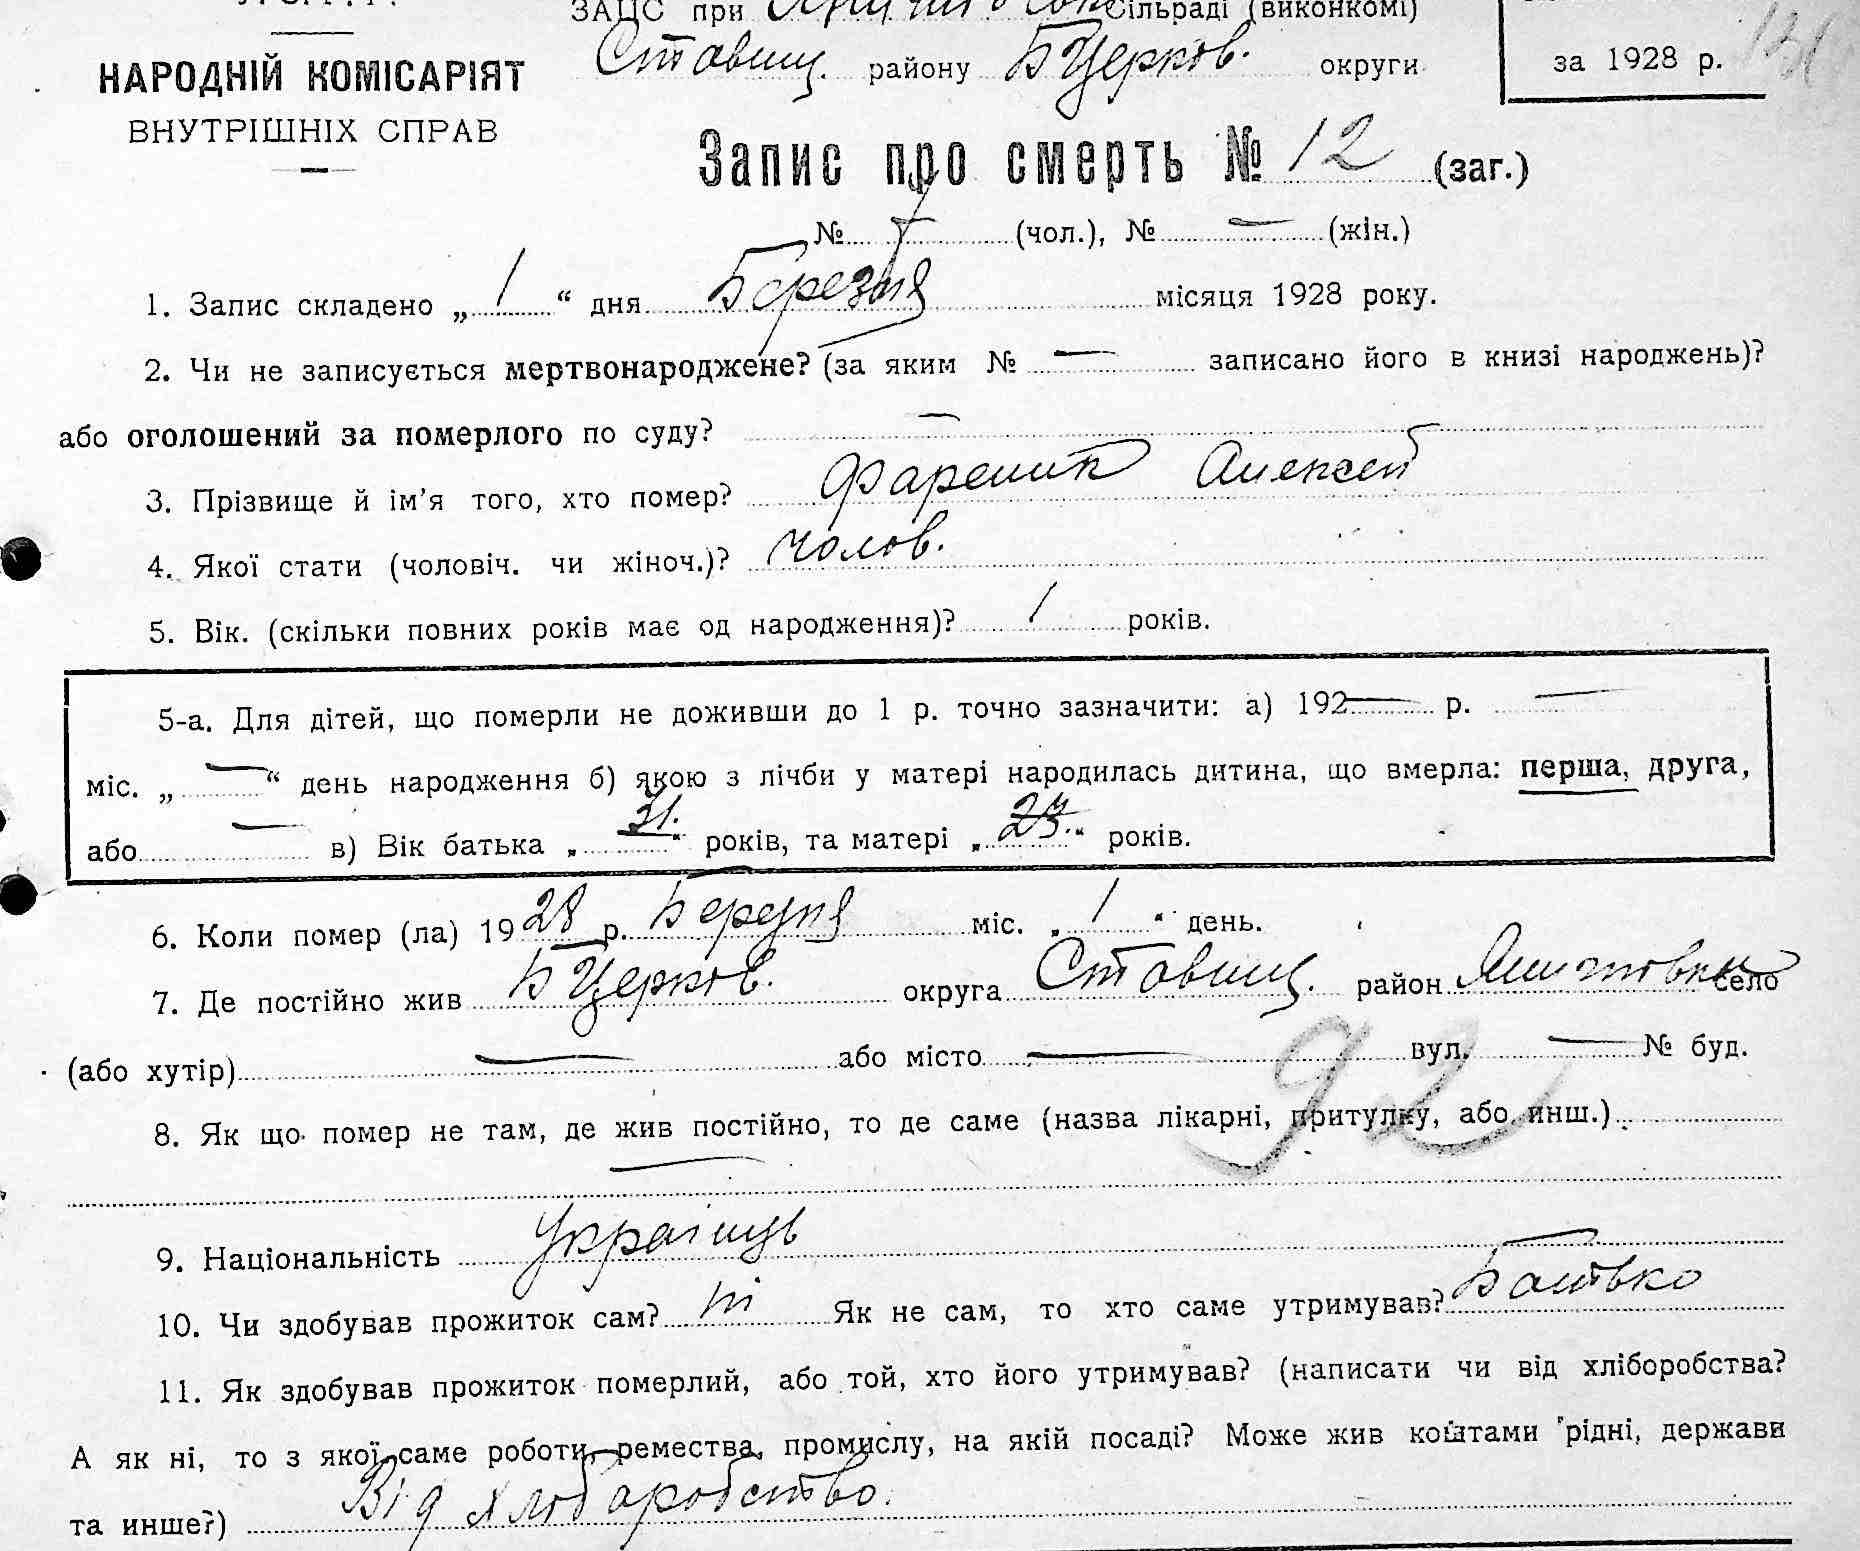 ЗАЦС при Сільраді (виконкомі)
Ставищ. району БЦерков. округи
за 1928 р.
НАРОДНІЙ КОМІСАРІЯТ
ВНУТРІШНІХ СПРАВ
Запис про смерть № 12 (заг.)
№ 7 (чол.), № — (жін.)
1. Запис складено „ 1 “ дня Березня місяця 1928 року.
2. Чи не записується мертвонароджене? (за яким № — записано його в книзі народжень)?
або оголошений за померлого по суду? —
3. Прізвище й ім’я того, хто помер? Фареник Алексей
4. Якої стати (чоловіч. чи жіноч.)? чолов.
5. Вік. (скільки повних років має од народження)? 1 років.
5-а. Для дітей, що померли не доживши до 1 р. точно зазначити: а) 192— р. —
міс. „ — “ день народження б) якою з лічби у матері народилась дитина, що вмерла: перша, друга,
або — в) Вік батька „ 31. “ років, та матері „ “ років.
6. Коли помер (ла) 1928 р. Березня міс. „ 1 “ день.
7. Де постійно жив БЦерков. округа Ставищ. район село
(або хутір) — або місто — вул. — № буд.
92
8. Як що помер не там, де жив постійно, то де саме (назва лікарні, притулку, або инш.)
—
9. Національність Українць
10. Чи здобував прожиток сам? ні Як не сам, то хто саме утримував? Батько
11. Як здобував прожиток померлий, або той, хто його утримував? (написати чи від хліборобства?
А як ні, то з якої саме роботи, ремества, промислу, на якій посаді? Може жив коштами рідні, держави
та инше?) Від хлоборобство.